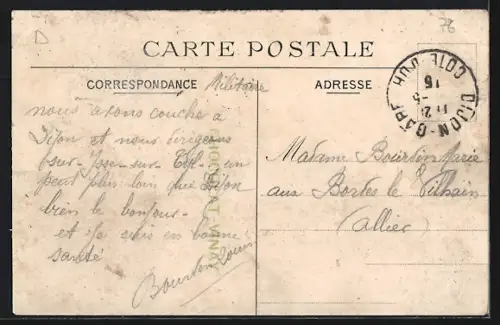 D
76
CARTE POSTALE
CORRESPONDANCE Militaire
ADRESSE
DIJON-GARE
COTE-D'OR
16
nous avons couché à
Dijon et nous dirigeons
sur Is-sur-Til un
peut plus loin que Dijon
bien le bonjour
et je suis en bonne
santé
Bourdin
CHOCOLAT VINAY
Madame Bourdin Marie
aux Bordes le Vilhain
(Allier)